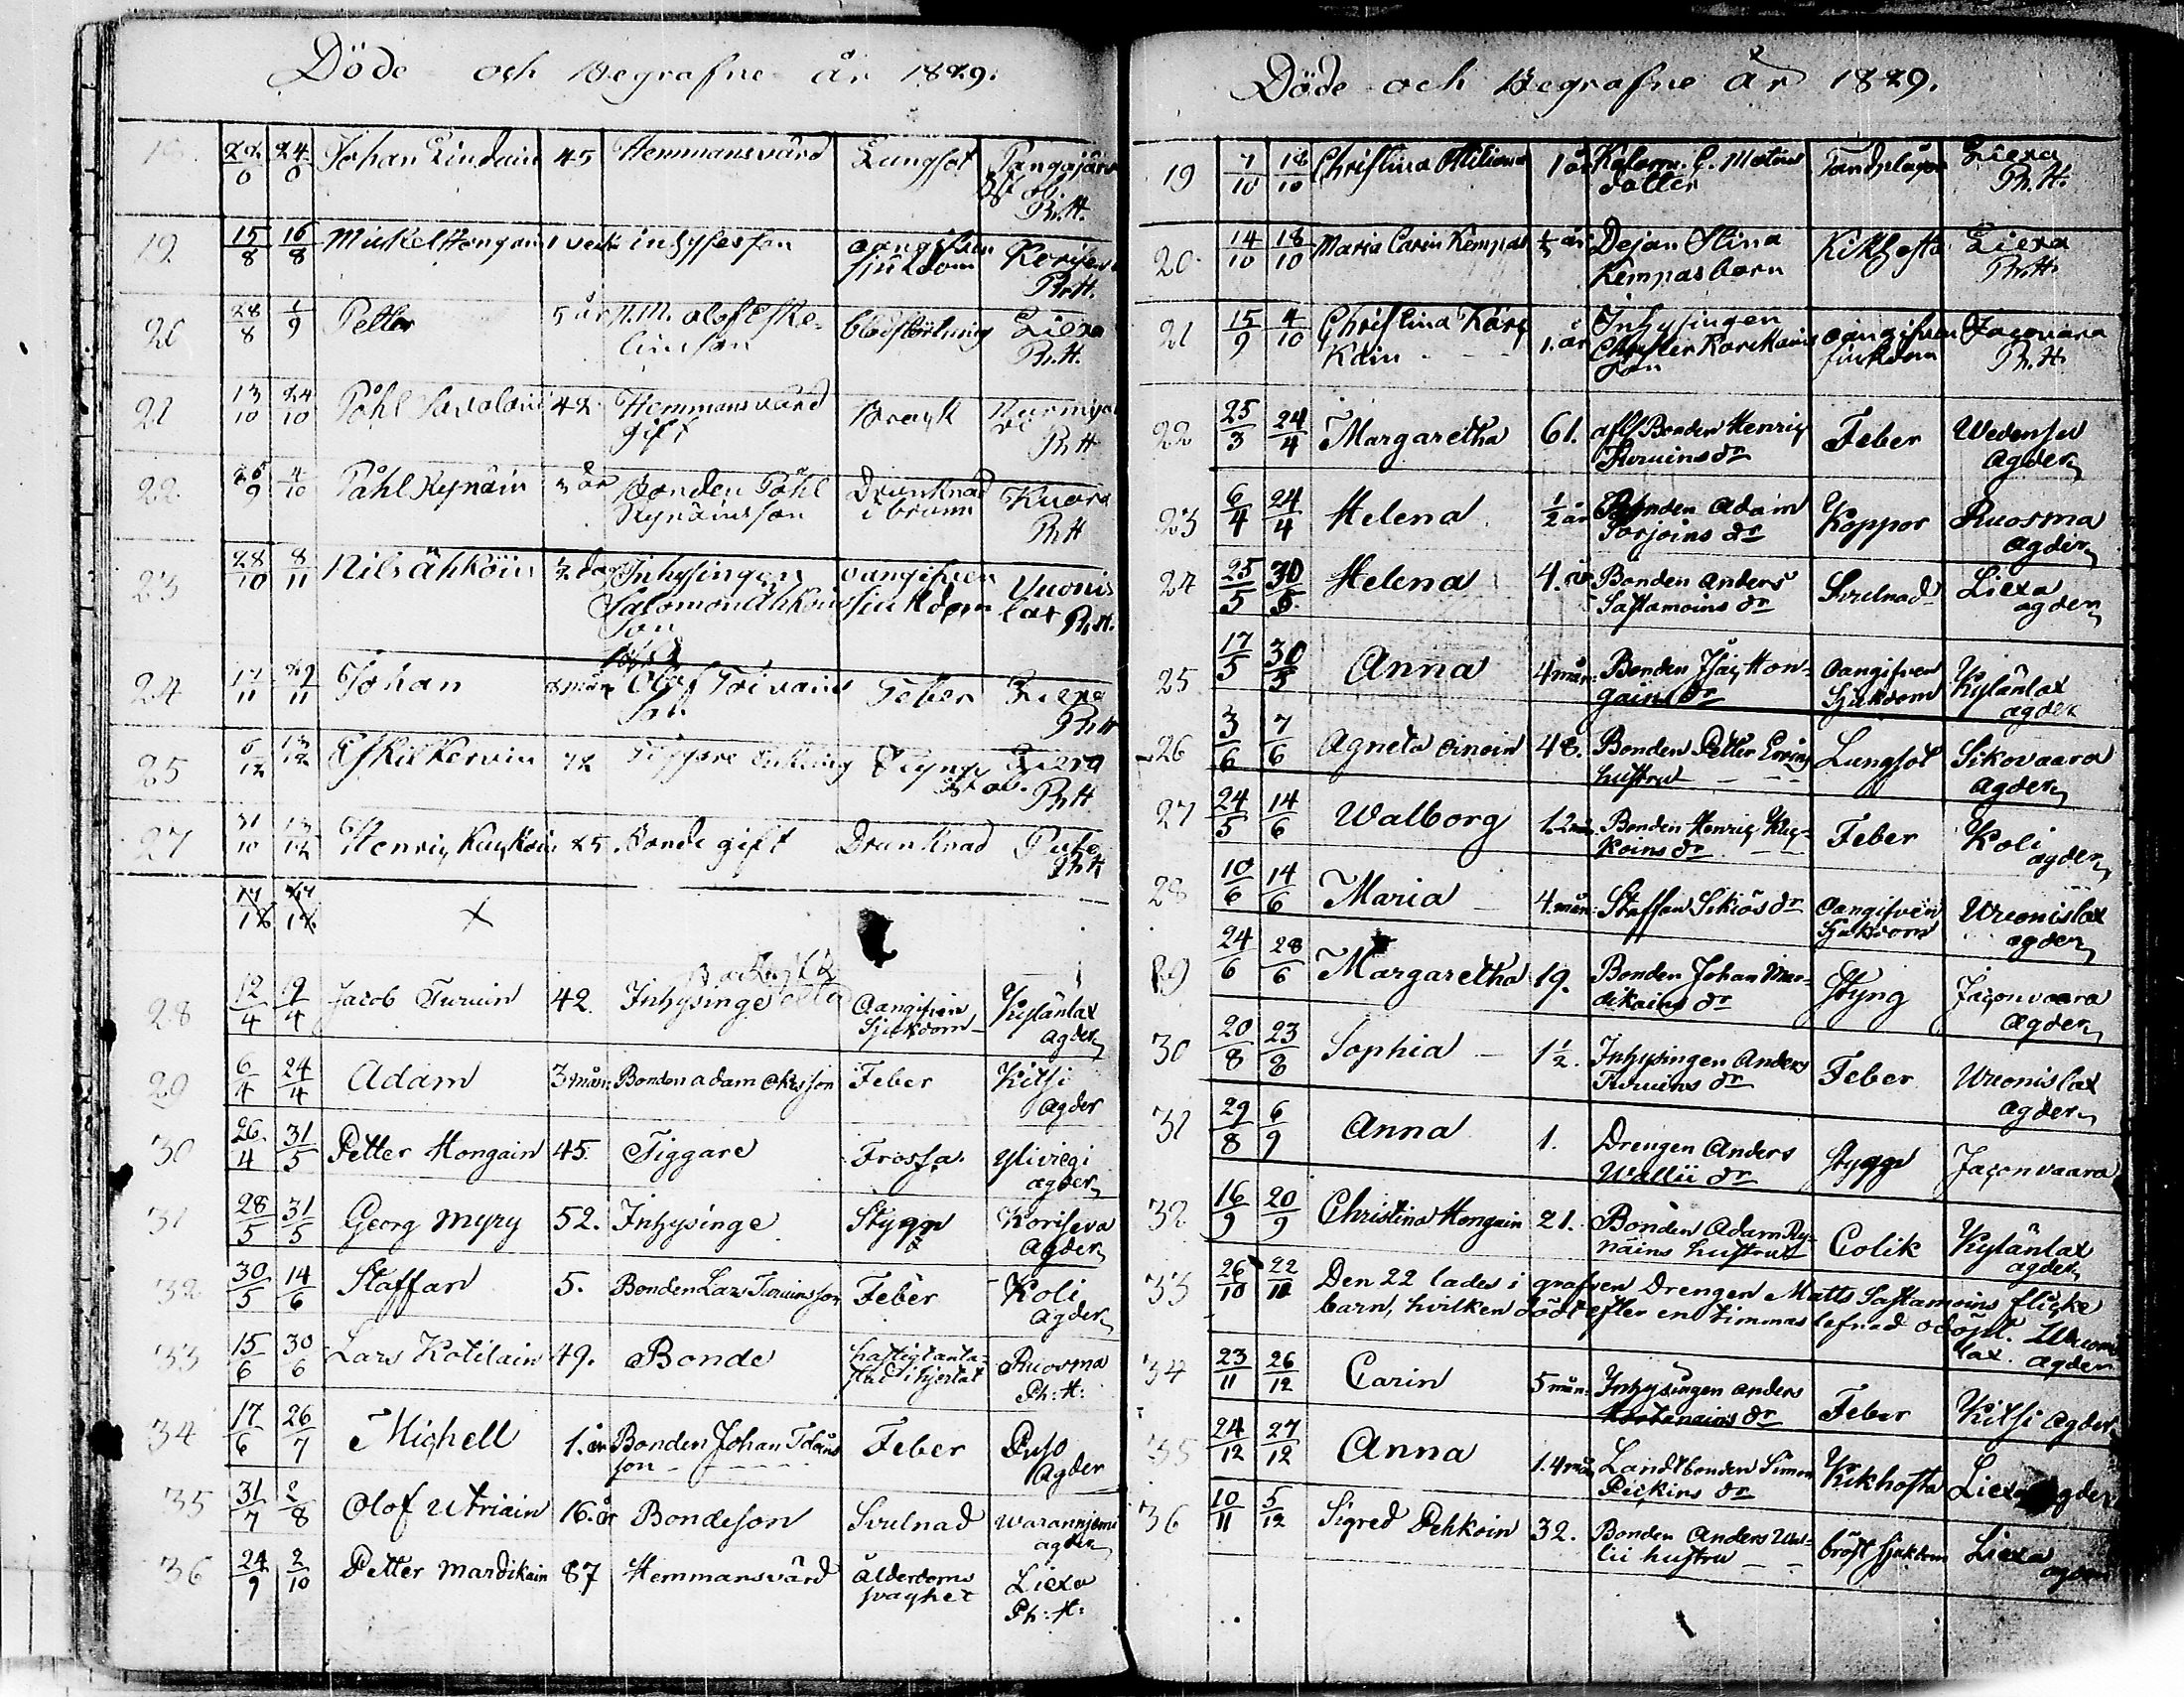 Döde och Begrafne år 1829.
22/6 24/6 Johan 45 Hemmansvärd Lungsot
Ph.H.
19. 15/8 16/8 Mickel Hongain inhysesson oangifven Korise
sjukdom Ph.H.
20 28/8 1/9 Petter 5 år N.M. Olof Eske- blodstörtning Liexa
linson Ph.H.
21 13/10 24/10 Påhl Savolain 42 Hemmansvärd
gift Ph.H
22 4/10 Påhl Rynäin 3 år Bonden Påhl Drunknad Kuora
Rynäins son i brunn Ph.H
23 28/10 8/11 Nils Ähköin Inhysingen oangifven Vuonis
Salomon Ähköins sjukdom lax Ph.H.
Son
24 17/11 29/11 Johan Olof Toivains Feber Liexa
Son Ph.H
25 6/12 13/12 Eskil Kervin 72 Tiggare Enkling Styng Liexa
Ph.H
27 31/10 13/12 Henric Kuckoin 25 Bonde gift Drunknad
Ph.H
X
28 12/4 19/4 Jacob Turuin 42. Inhysinge Oangifven Kylänlax
Sjukdom Agder
29 6/4 24/4 Adam 3 mån: Bonden Adam son Feber Kitsi
Agder
30 26/4 31/5 Petter Hongain 45. Tiggare Frossa Yliviegi
agder
31 28/5 31/5 Georg Myry 52. Inhysinge Stygge Koriseva
Agder
32 30/5 14/6 Staffan 5. Bonden Lars Turuins son Feber Koli
Agder
33 15/6 30/6 Lars Kotilain 49. Bonde häftigt anta- Ruosma
Ph: H:
34 17/6 26/7 Michell 1. år Bonden Johan Feber Puso
son Agder
35 31/7 2/8 Olof Utriain 16. år Bondeson Svulnad
agder
36 24/9 2/10 Petter Mardikain 87 Hemmansvärd ålderdoms Liexa
svaghet Ph: H:
Döde och Begrafne år 1829.
19 7/10 18/10 Christina 1 år Tandplågor Liexa
dotter Ph.H.
20. 14/10 18/10 Maria Carin Kempas Dejan Stina Kikhosta Liexa
Kempas barn Ph.H.
21 15/9 4/10 Christina Kärs 1. år Inhysingen oangifven Jaconvara
Kain sjukdom Ph.H.
22 25/3 24/4 Margaretha 61. afl. Bonden Henric Feber
dr Agder
23 6/4 24/4 Helena 1/2 år Bonden Adam Koppor Ruosma
Torjoins dr Agder
24 25/5 30/5 Helena 4. år Bonden Anders Svulnad Liexa
Sastamoins dr agder
25 17/5 30/5 Anna 4 mån: Bonden Isac Hon- Oangifven Kylänlax
gains dr Sjukdom agder
26 3/6 7/6 Agneta Oinoin 48. Bonden Petter Lungsot Sikovaara
hustru Agder
27 24/5 14/6 Walborg Bonden Henric Kuc- Feber Koli
koins dr agder
28 10/6 14/6 Maria 4. mån: Staffan Sikiös dr Oangifven Wuonislax
Sjukdom agder
29 24/6 28/6 Margaretha 19. Bonden Johan Mar- Styng Jaconvaara
dikains dr Agder
30 20/8 23/8 Sophia 1 1/2. Inhysingen Anders Feber Wuonislax
Turuins dr Agder
31 29/8 6/9 Anna 1. Drengen Anders Stygge Jaconvaara
Wallii dr
32 16/9 20/9 Christina Hongain 21. Bonden Adam Ry- Colik Kylänlax
näins hustru agder
33 26/10 22/11 Den 22 lades i grafven Drengen Matts Sastamoins flicke
barn, hvilken dödt efter en timmas lefnad odöpt. Wuonis
lax. Agder
34 23/11 26/12 Carin 5 mån: Inhysingen Anders Feber Kitsi Agder
dr
35 24/12 27/12 Anna Landtbonden Simon Kikhosta Liexa Agder
Pickins dr
36 10/11 5/12 Sigred Pehkoin 32. Bonden Anders Wal- bröst sjukdom Liexa
lii hustru agder